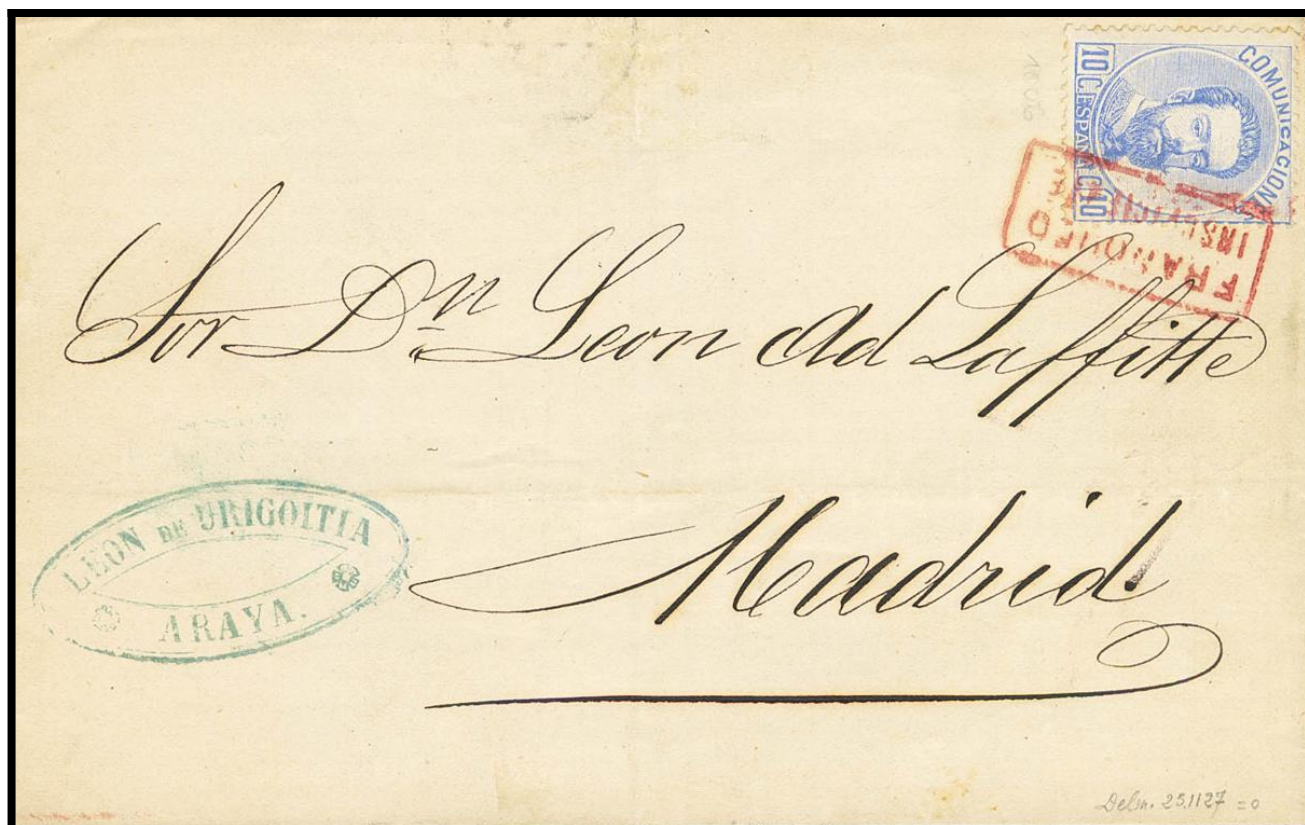 COMUNICACION
10 C. ESPAÑA C. 10
FRANQUEO
Sor Dn Leon Ad Laffitte
Madrid
LEON DE URIGOITIA
ARAYA.
Delm. 251127 = 0